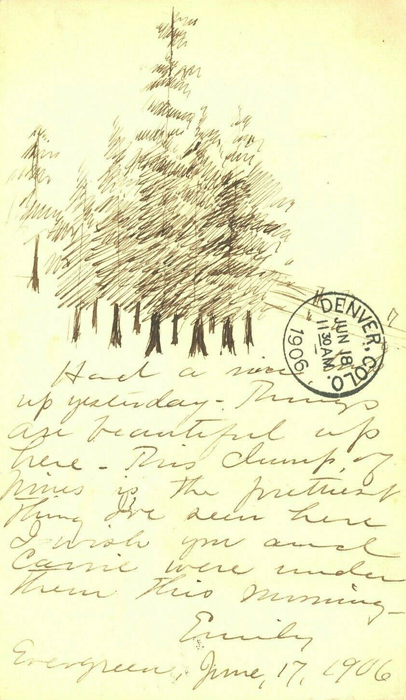 DENVER, COLO.
JUN 18
11 30 AM
1906
Had a nice
up yesterday - Things
are beautiful up
here - This clump of
pines is the prettiest
thing I've seen here
I wish you and
Carrie were under
them this morning -
Emily
Evergreen, June, 17, 1906